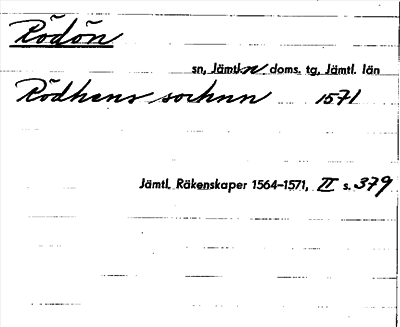 Rödön
sn, Jämtl. n. doms. tg, Jämtl. län
Rödhens sochnn 1571
Jämtl. Räkenskaper 1564–1571, II s. 379